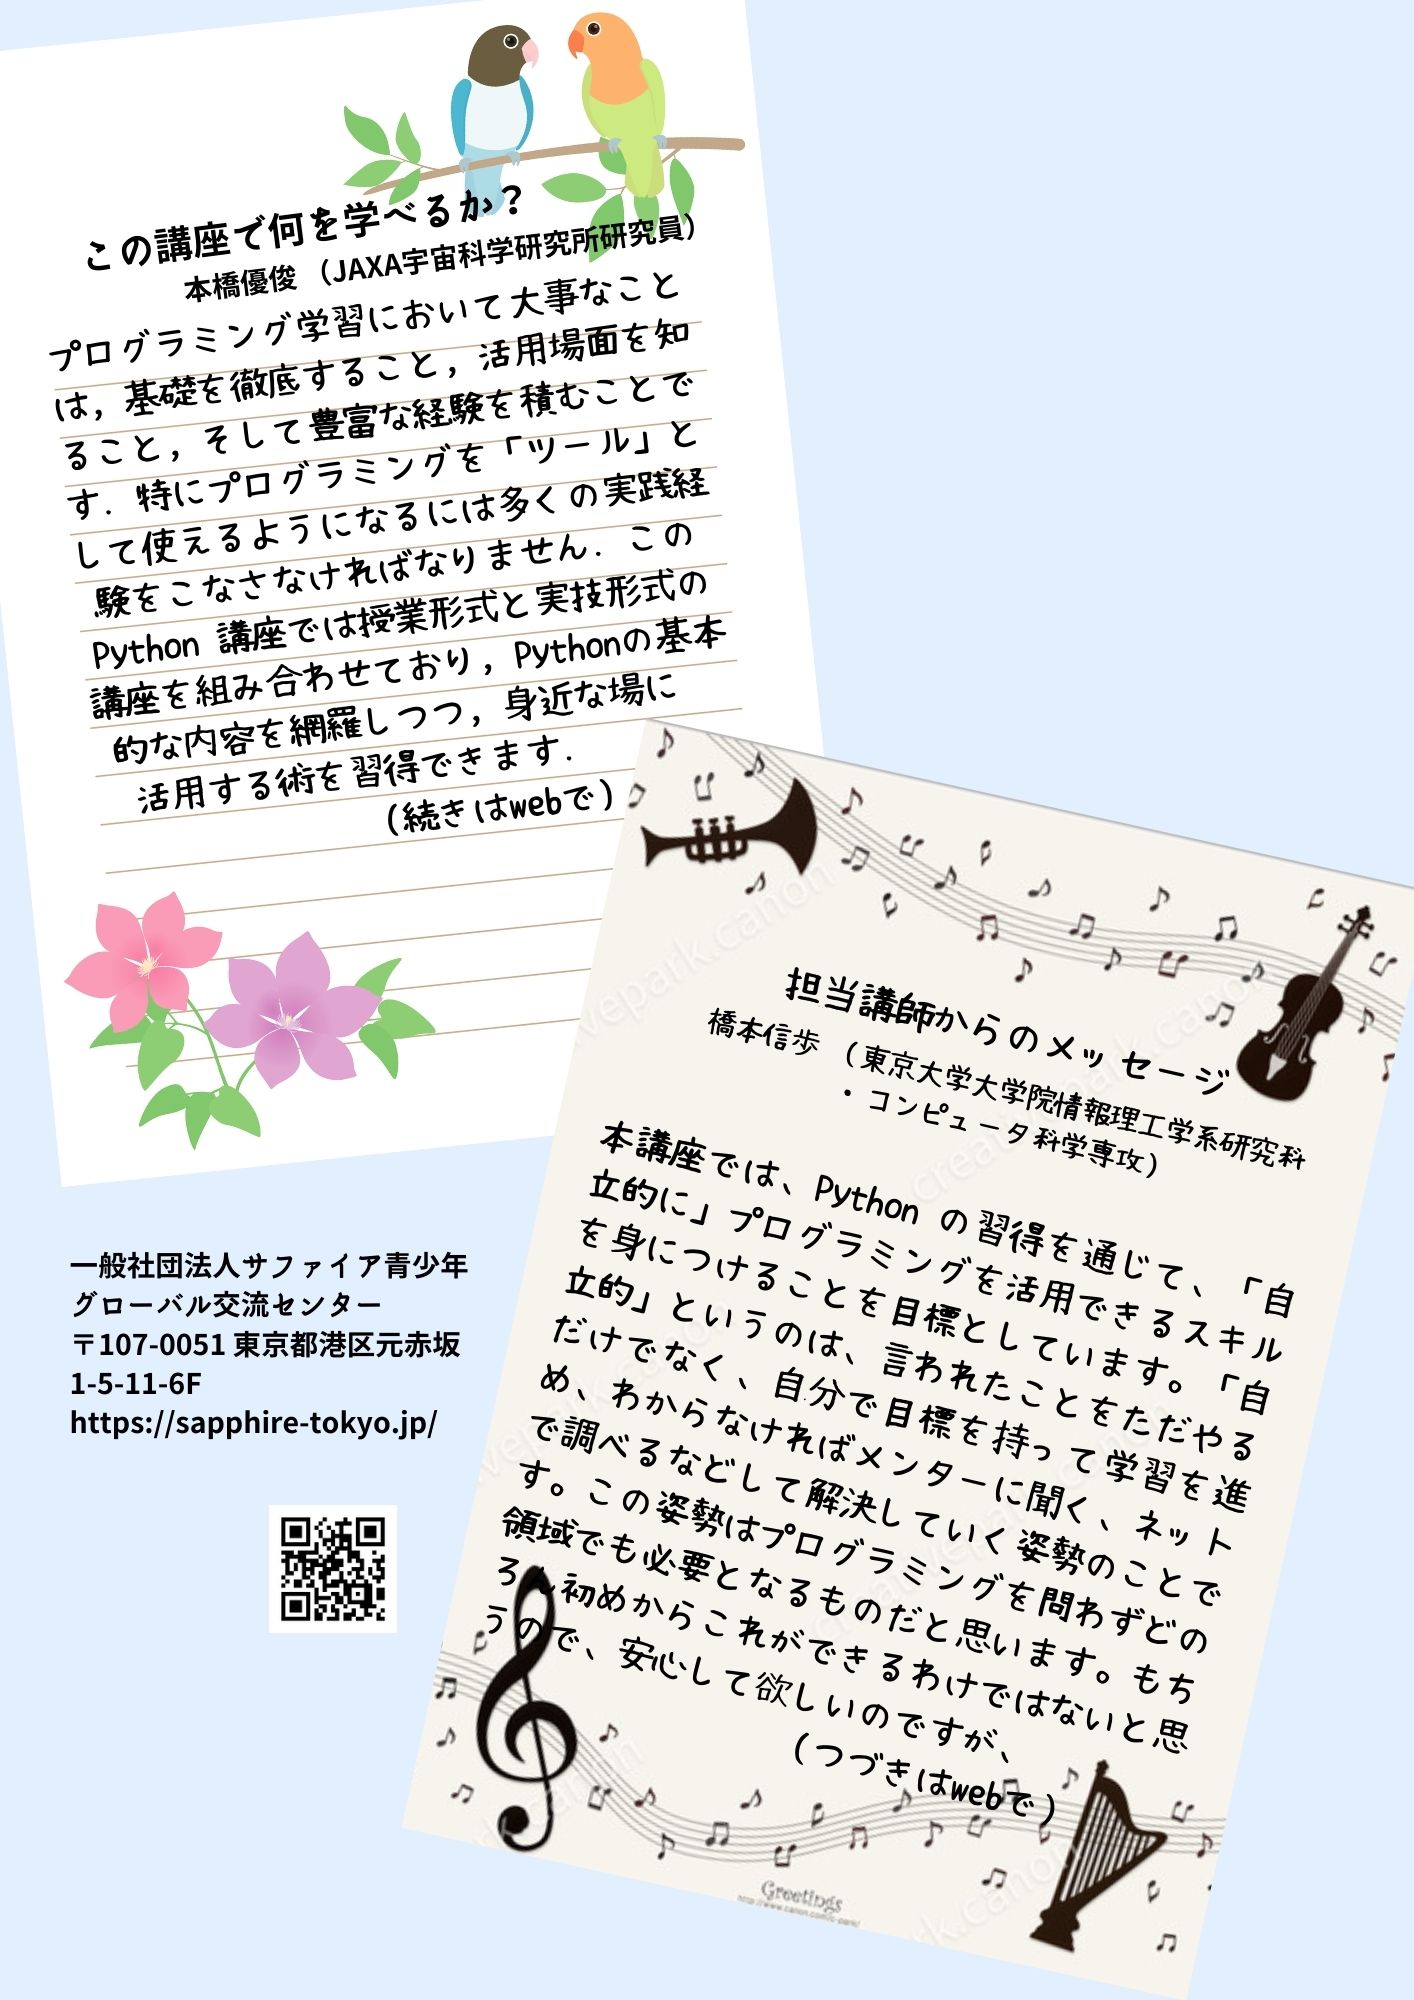 この講座で何を学べるか？
本橋優俊（JAXA宇宙科学研究所研究員）
プログラミング学習において大事なこと
は，基礎を徹底すること，活用場面を知
ること，そして豊富な経験を積むことで
す．特にプログラミングを「ツール」と
して使えるようになるには多くの実践経
験をこなさなければなりません．この
Python 講座では授業形式と実技形式の
講座を組み合わせており，Pythonの基本
的な内容を網羅しつつ，身近な場に
活用する術を習得できます．
（続きはwebで）
担当講師からのメッセージ
橋本信歩（東京大学大学院情報理工学系研究科
・コンピュータ科学専攻）
本講座では、Python の習得を通じて、「自
立的に」プログラミングを活用できるスキル
を身につけることを目標としています。「自
立的」というのは、言われたことをただやる
だけでなく、自分で目標を持って学習を進
め、わからなければメンターに聞く、ネット
で調べるなどして解決していく姿勢のことで
す。この姿勢はプログラミングを問わずどの
領域でも必要となるものだと思います。もち
ろん初めからこれができるわけではないと思
うので、安心して欲しいのですが、
（つづきはwebで）
一般社団法人サファイア青少年
グローバル交流センター
〒107-0051 東京都港区元赤坂
1-5-11-6F
https://sapphire-tokyo.jp/
creativepark.canon
Greetings